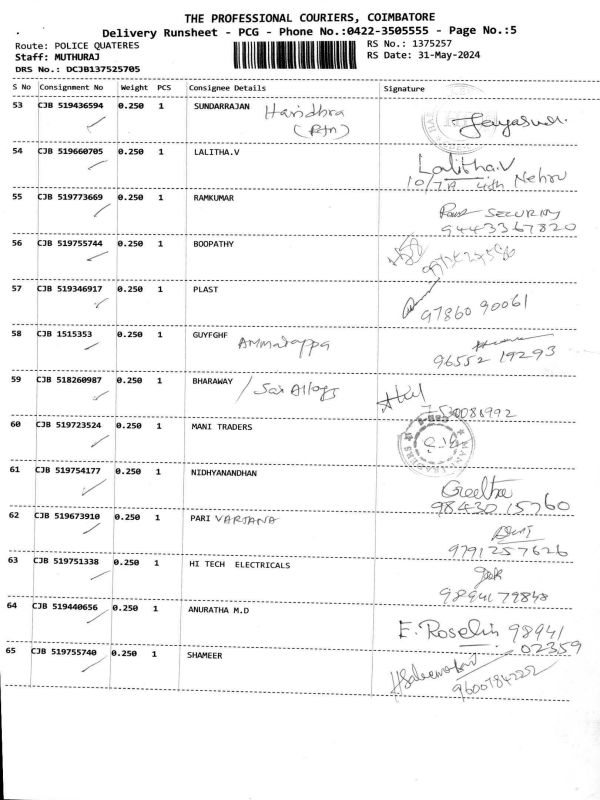 THE PROFESSIONAL COURIERS, COIMBATORE
Delivery Runsheet - PCG - Phone No.:0422-3505555 - Page No.:5
Route: POLICE QUATERES
RS No.: 1375257
Staff: MUTHURAJ
RS Date: 31-May-2024
DRS No.: DCJB137525705
S No Consignment No Weight PCS Consignee Details Signature
53 CJB 519436594 0.250 1 SUNDARRAJAN Haridhra
(Ptn) Jayasudi.
54 CJB 519660705 0.250 1 LALITHA.V Lalitha.V
10/7A 4th Nehru
55 CJB 519773669 0.250 1 RAMKUMAR SECURITY
94443367820
56 CJB 519755744 0.250 1 BOOPATHY
57 CJB 519346917 0.250 1 PLAST
97860 90061
58 CJB 1515353 0.250 1 GUYFGHF Ammaiappa
96552 19293
59 CJB 518260987 0.250 1 BHARAWAY / Sai Alloys
7530081992
60 CJB 519723524 0.250 1 MANI TRADERS
61 CJB 519754177 0.250 1 NIDHYANANDHAN Geetha
98430 15760
62 CJB 519673910 0.250 1 PARI VARTANA
9791257626
63 CJB 519751338 0.250 1 HI TECH ELECTRICALS
9894179848
64 CJB 519440656 0.250 1 ANURATHA M.D
E. Roselin 98941
02359
65 CJB 519755740 0.250 1 SHAMEER
9600784222